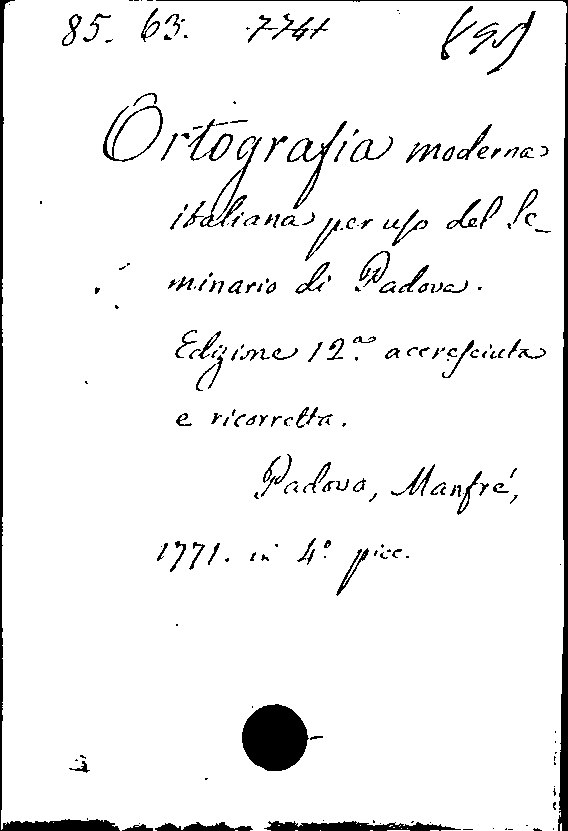 85. 63. 7741
Ortografia moderna
italiana per uso del Se-
minario di Padova.
Edizione 12.a accresciuta
e ricorretta.
Padova, Manfré,
1771. in 4.o picc.